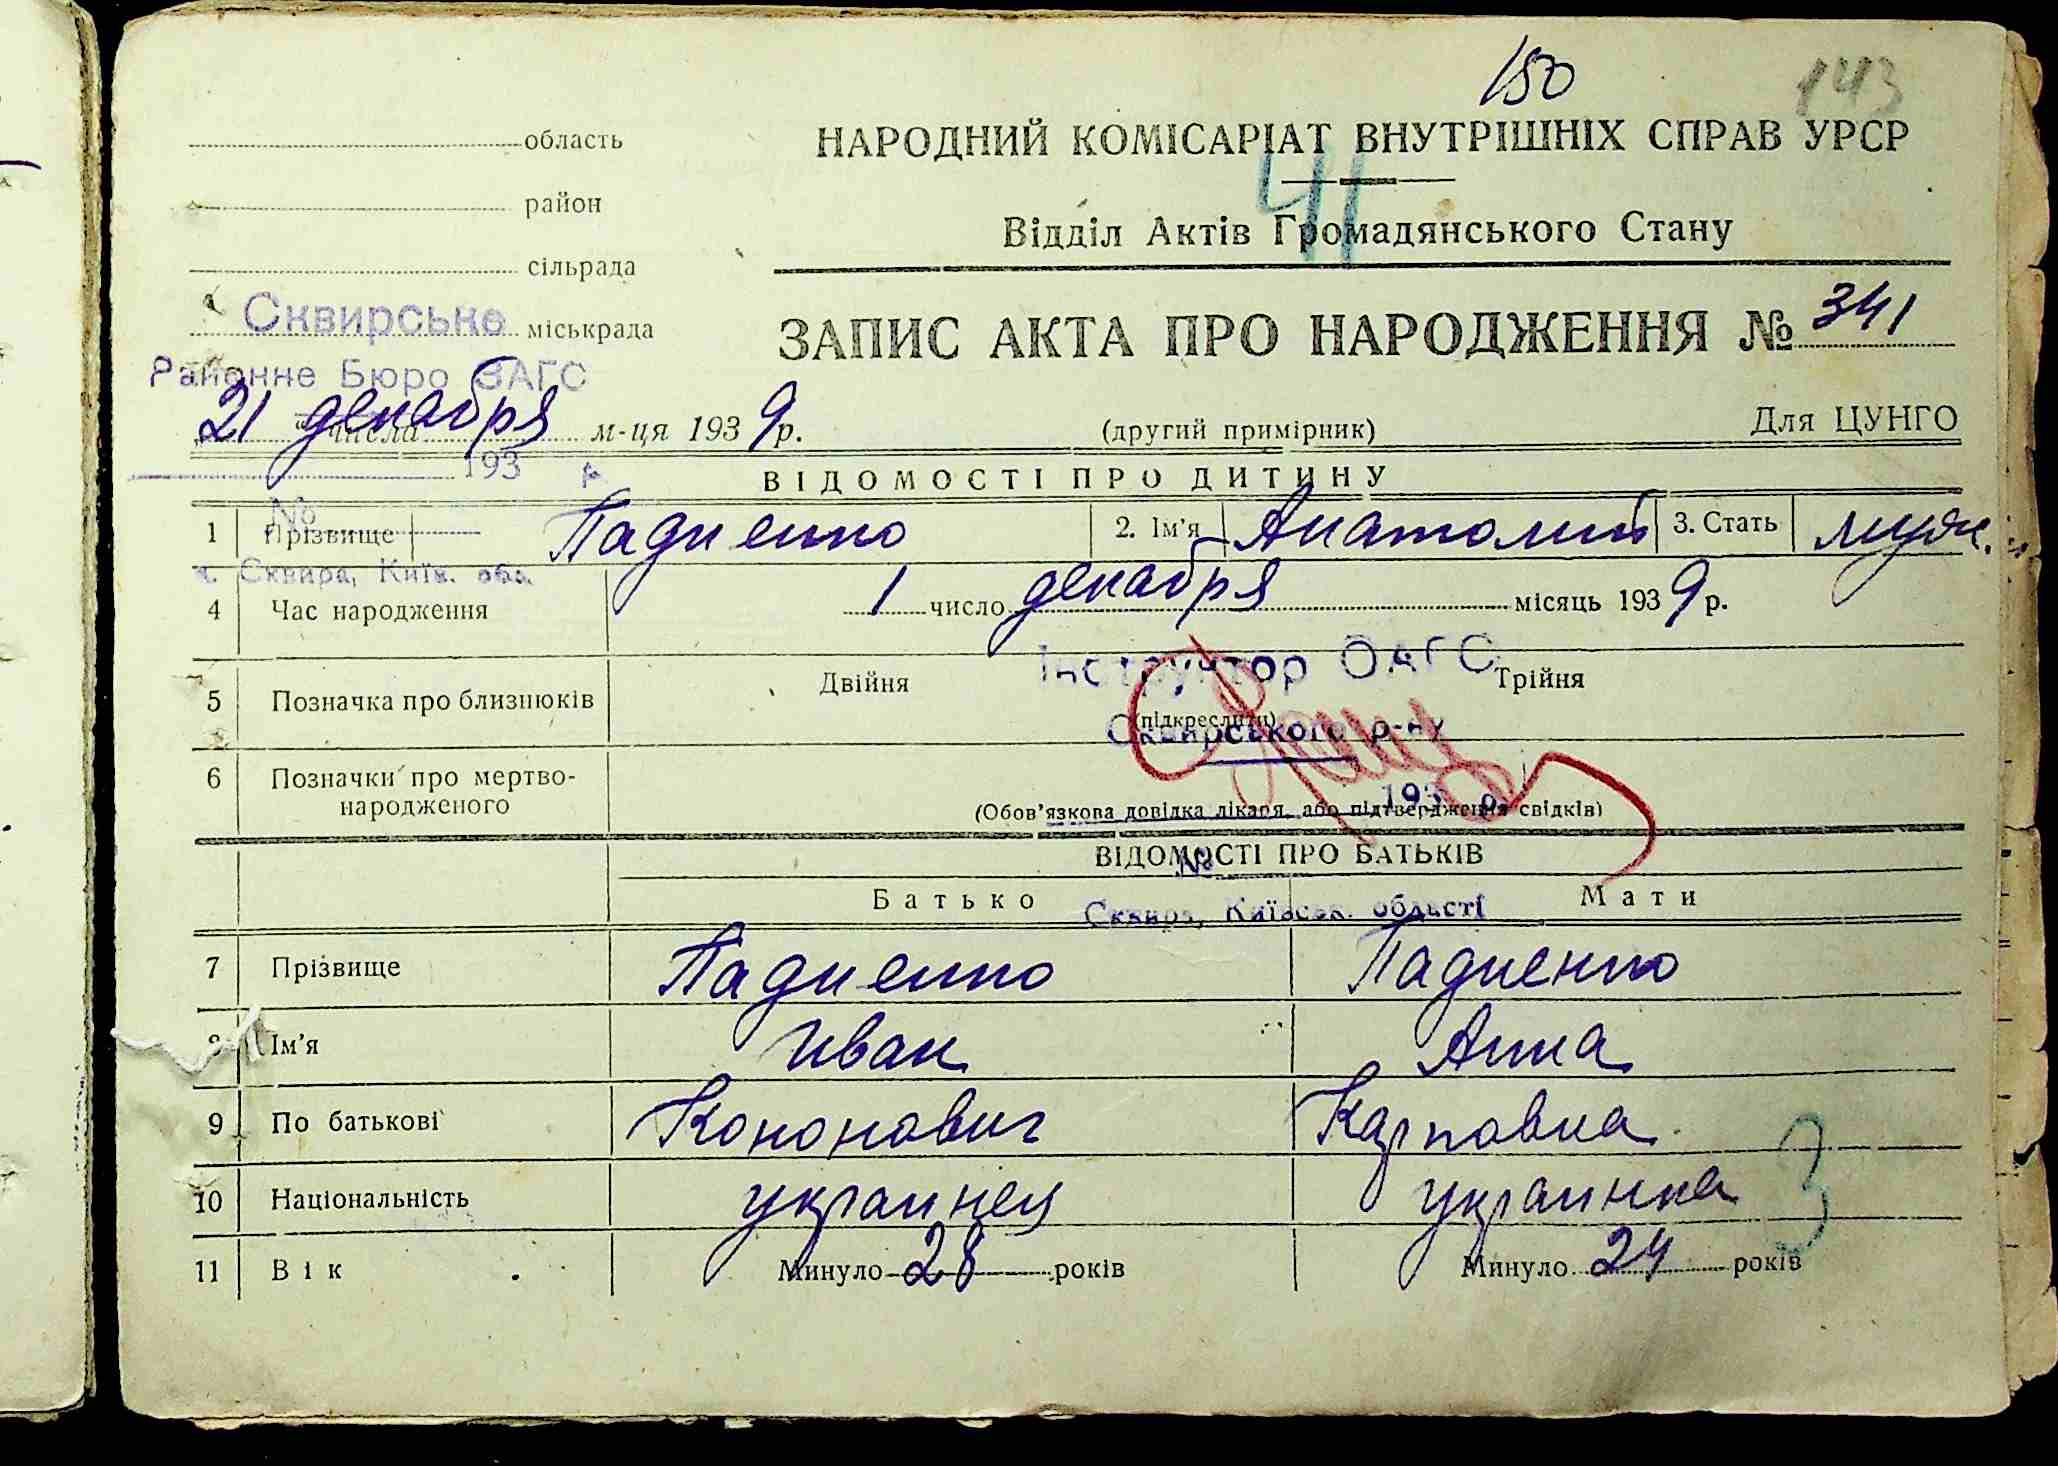 150
143
область
НАРОДНИЙ КОМІСАРІАТ ВНУТРІШНІХ СПРАВ УРСР
41
район
Відділ Актів Громадянського Стану
сільрада
Сквирське міськрада
ЗАПИС АКТА ПРО НАРОДЖЕННЯ № 341
Районне Бюро ЗАГС
21 " числа декабря м-ця 1939 р.
(другий примірник)
Для ЦУНГО
193
ВІДОМОСТІ ПРО ДИТИНУ
№
1 Прізвище Падиенко 2. Ім'я Анатолий 3. Стать мужс.
Сквира, Київ. обл.
4 Час народження 1 число декабря місяць 1939 р.
Інструктор ОАГС
5 Позначка про близнюків Двійня Трійня
(підкреслити)
Сквирського р-ну
6 Позначки про мертво-
народженого
193 р.
(Обов'язкова довідка лікаря або підтвердження свідків)
ВІДОМОСТІ ПРО БАТЬКІВ
№
Батько Мати
Сквира, Київськ. області
7 Прізвище Падиенко Падиенко
8 Ім'я Иван Анна
9 По батькові Кононович Карповна
3
10 Національність украинец украинка
11 Вік Минуло 28 років Минуло 24 років